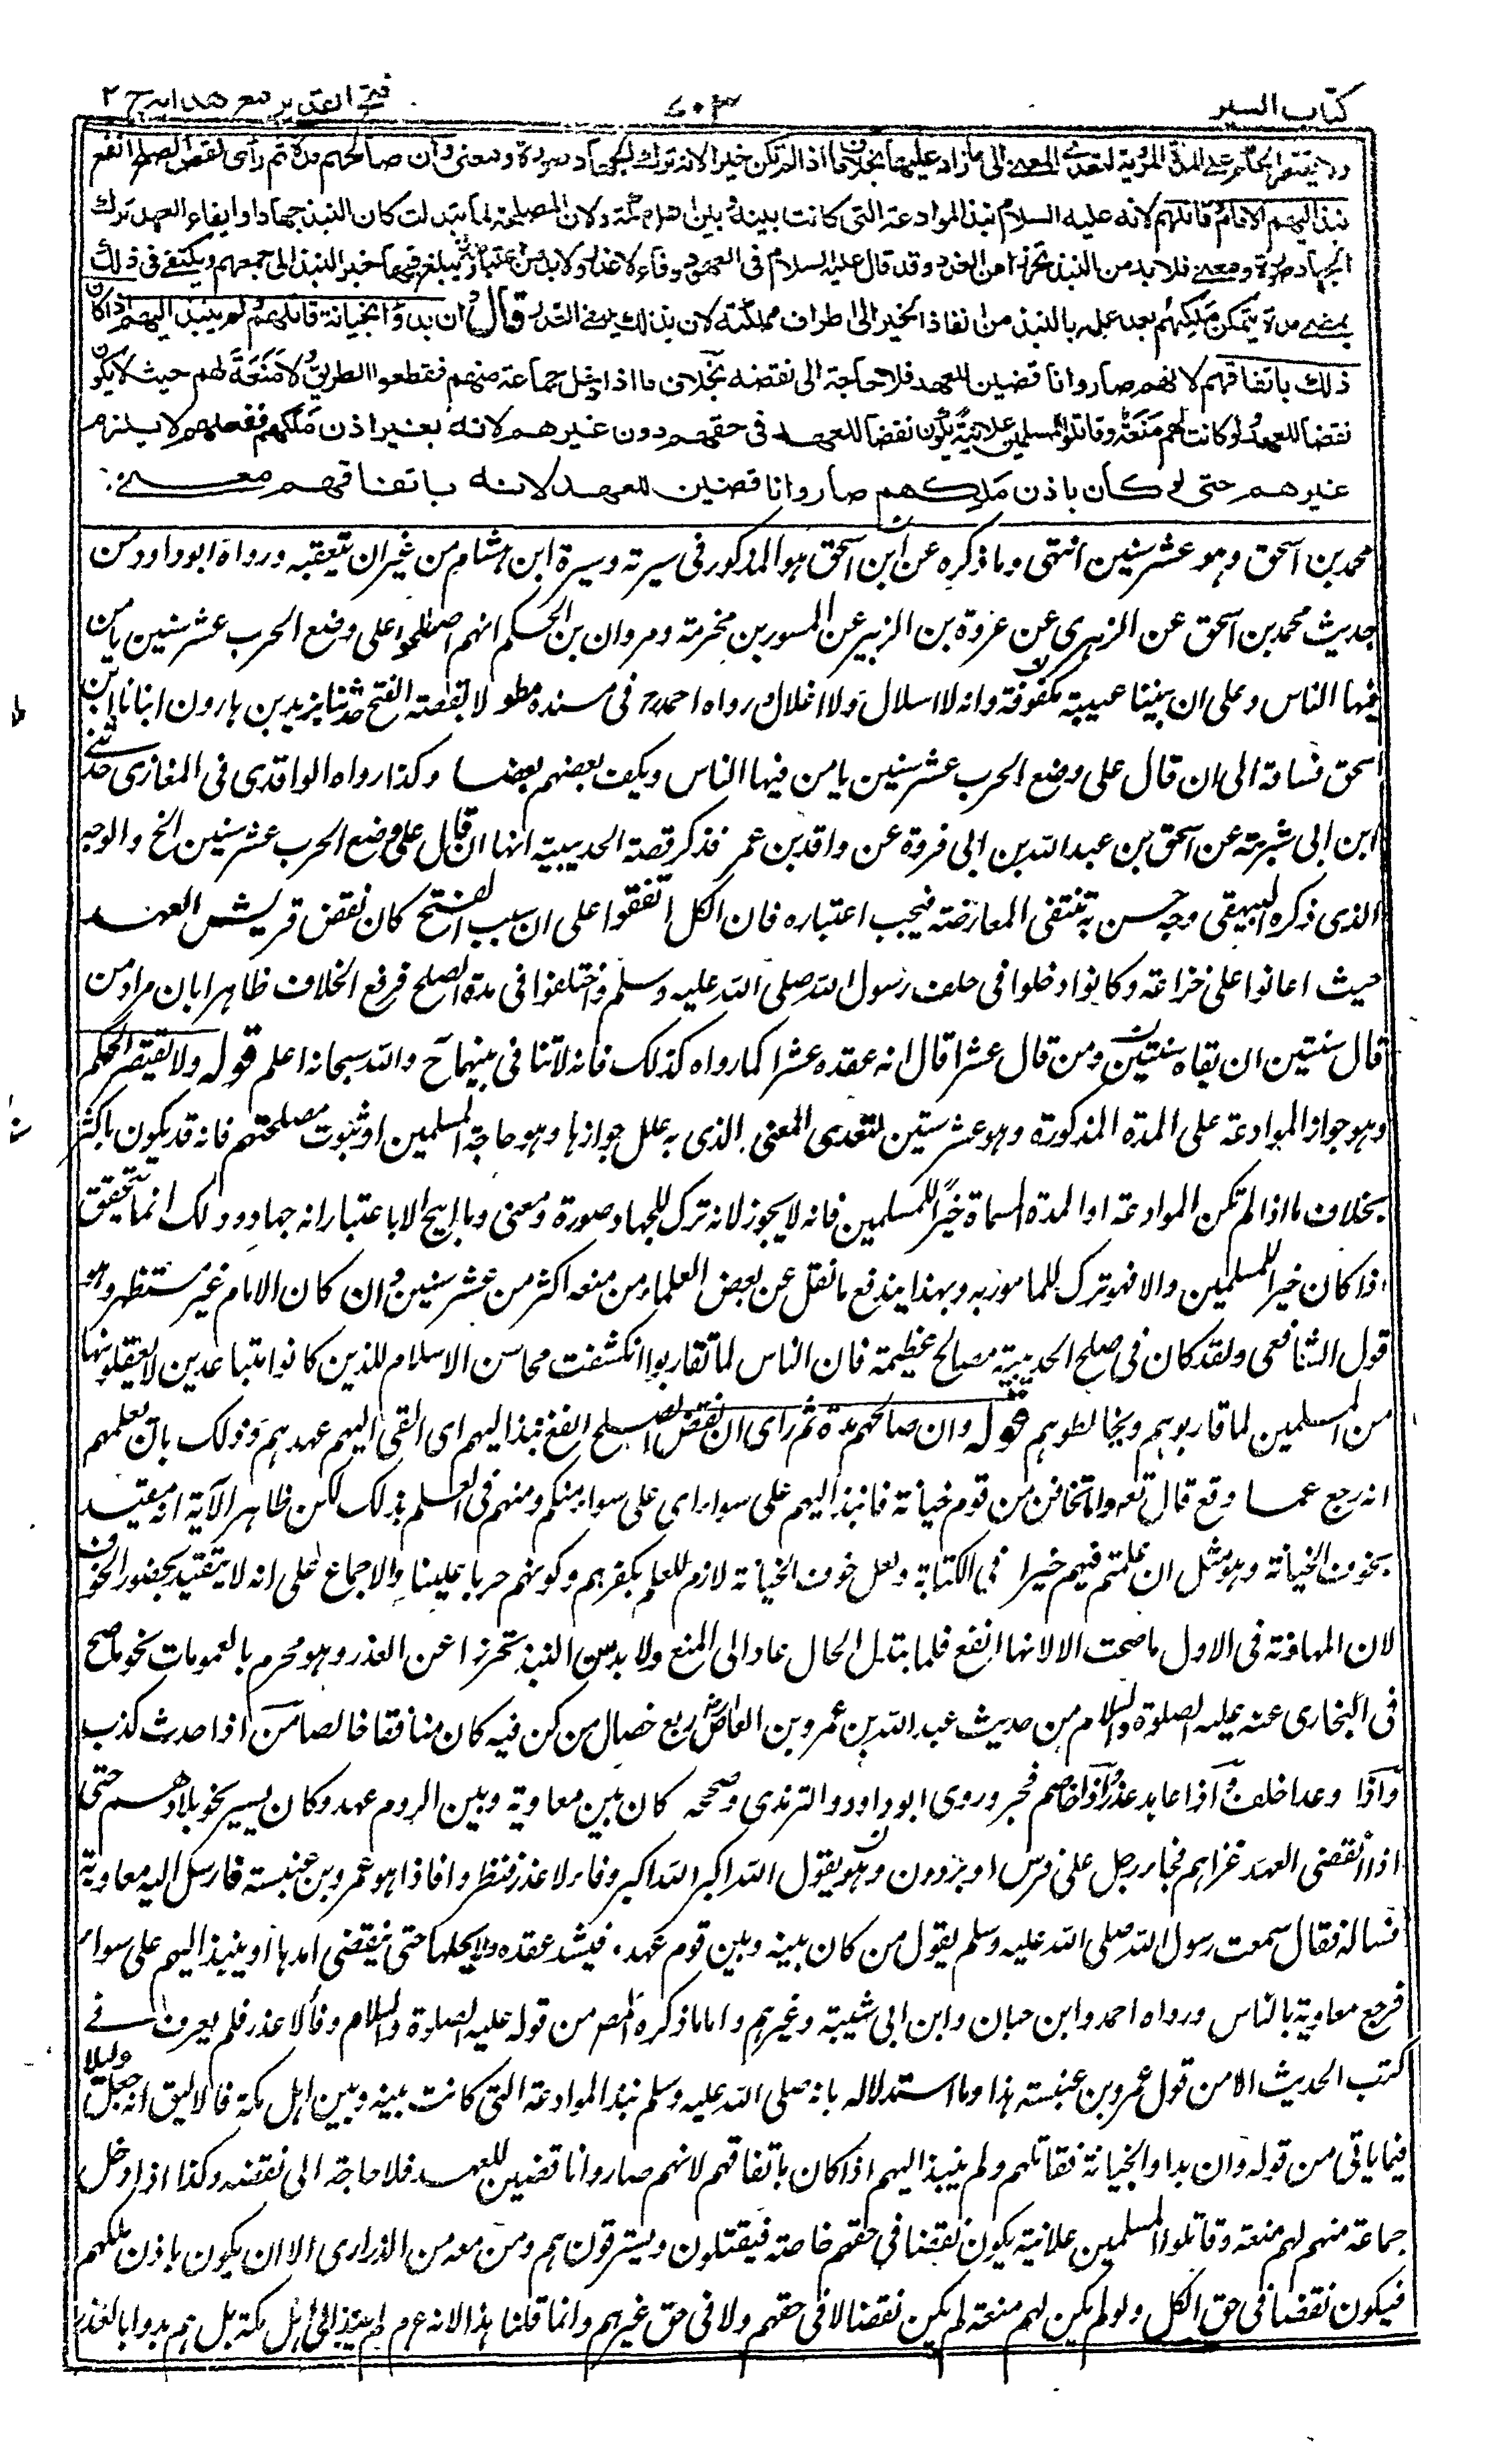 كتاب السير ٧٠٣ فتح القدير مع هدايه ج ٢
ولا يقتصر الحكم على المدة المروية لتعدي المعنى الى ما زاد عليها بخلاف ما اذا لم تكن خيرا لانه ترك للجهاد صورة ومعنى وان صالحهم مدة ثم رأى نقض الصلح انفع
نبذ اليهم الامام وقاتلهم لانه عليه السلام نبذ الموادعة التى كانت بينه وبين اهل مكة ولان المصلحة لما تبدلت كان النبذ جهادا وايفاء العهد ترك
الجهاد صورة ومعنى فلا بد من النبذ تحرزا عن الغدر وقد قال عليه السلام فى العهود وفاء لا غدر ولا بد من اعتبار مدة يبلغ فيها خبر النبذ الى جميعهم ويكتفى فى ذلك
بمضى مدة يتمكن ملكهم بعد علمه بالنبذ من انفاذ الخبر الى اطراف مملكته لان بذلك ينتفى الغدر قال وان بدؤا بخيانة قاتلهم ولم ينبذ اليهم اذا كان
ذلك باتفاقهم لانهم صاروا ناقضين للعهد فلا حاجة الى نقضه بخلاف ما اذا دخل جماعة منهم فقطعوا الطريق ولا مَنَعَةَ لهم حيث لا يكون
نقضا للعهد ولو كانت لهم مَنَعَة وقاتلوا المسلمين علانية يكون نقضا للعهد فى حقهم دون غيرهم لانه بغير اذن مَلِكهم ففعلهم لا يلزم
غيرهم حتى لو كان باذن مَلِكهم صاروا ناقضين للعهد لانه باتفاقهم معنى
محمد بن اسحق وهو عشر سنين انتهى وما ذكره عن ابن اسحق هو المذكور فى سيرته وسيرة ابن هشام من غير ان يتعقبه ورواه ابو داود من
حديث محمد بن اسحق عن الزهرى عن عروة بن الزبير عن المسور بن مخرمة ومروان بن الحكم انهم اصطلحوا على وضع الحرب عشر سنين يأمن
فيها الناس وعلى ان بيننا عيبة مكفوفة وانه لا اسلال ولا اغلال ورواه احمد رح فى مسنده مطولا بقصة الفتح حدثنا يزيد بن هارون انبانا ابن
اسحق فساقه الى ان قال على وضع الحرب عشر سنين يامن فيها الناس ويكف بعضهم بعضا وكذا رواه الواقدى فى المغازى حدثنى
ابن ابى سبرة عن اسحق بن عبد الله بن ابى فروة عن واقد بن عمر فذكر قصة الحديبية الى ان قال على وضع الحرب عشر سنين الخ والوجه
الذى ذكره البيهقى وجه حسن به تنتفى المعارضة فيجب اعتباره فان الكل اتفقوا على ان سبب الفتح كان نقض قريش العهد
حيث اعانوا على خزاعة وكانوا دخلوا فى حلف رسول الله صلى الله عليه وسلم واختلفوا فى مدة الصلح فرفع الخلاف ظاهرا بان مراد من
قال سنتين ان بقاه سنتين ومن قال عشرا قال انه عقده عشرا كما رواه كذلك فانه لا تنافى بينهما ح والله سبحانه اعلم قوله ولا يقتصر الحكم
وهو جواز الموادعة على المدة المذكورة وهو عشر سنين لتعدى المعنى الذى به علل جوازها وهو حاجة المسلمين او ثبوت مصلحتهم فانه قد يكون باكثر
بخلاف ما اذا لم تكن الموادعة او المدة المسماة خيرا للمسلمين فانه لا يجوز لانه ترك للجهاد صورة ومعنى وما ابيح الا باعتبار انه جهاد وذلك انما يتحقق
اذا كان خيرا للمسلمين والا فهو ترك للمامور به وبهذا يندفع ما نقل عن بعض العلماء من منعه اكثر من عشر سنين وان كان الامام غير مستظهر وهو
قول الشافعى ولقد كان فى صلح الحديبية مصالح عظيمة فان الناس لما تقاربوا انكشفت محاسن الاسلام للذين كانوا متباعدين لا يعقلونها
من المسلمين لما قاربوهم وتخالطوهم قوله وان صالحهم مدة ثم راى ان نقض الصلح انفع نبذ اليهم اى القى اليهم عهدهم وذلك بان يعلمهم
انه رجع عما وقع قال تعه واما تخافن من قوم خيانة فانبذ اليهم على سواء اى على سواء منكم ومنهم فى العلم بذلك لكن ظاهر الآية انه مقيد
بخوف الخيانة وهو مثل ان علمتم فيهم خيرا فى الكتابة ولعل خوف الخيانة لازم للعلم بكفرهم وكونهم حربا علينا والاجماع على انه لا يتقيد بحضور الخوف
لان المهادنة فى الاول ما صحت الا لانها انفع فلما تبدل الحال عاد الى المنع ولا بد من النبذ تحرزا عن الغدر وهو محرم بالعمومات نحو ما صح
فى البخارى عنه عليه الصلوة والسلام من حديث عبد الله بن عمرو بن العاص رض اربع خصال من كن فيه كان منافقا خالصا من اذا حدث كذب
واذا وعد اخلف واذا عاهد غدر واذا خاصم فجر وروى ابو داود والترمذى وصححه كان بين معاوية وبين الروم عهد وكان يسير نحو بلادهم حتى
اذا انقضى العهد غزاهم فجاء رجل على فرس او برذون وهو يقول الله اكبر الله اكبر وفاء لا غدر فنظروا فاذا هو عمرو بن عنبسة فارسل اليه معاوية
فساله فقال سمعت رسول الله صلى الله عليه وسلم يقول من كان بينه وبين قوم عهد فيشد عقده ولا يحلها حتى ينقضى امدها او ينبذ اليهم على سواء
فرجع معاوية بالناس ورواه احمد وابن حبان وابن ابى شيبة وغيرهم واما ما ذكره المص من قوله عليه الصلوة والسلام وفأ لا غدر فلم يعرف فى
كتب الحديث الا من قول عمرو بن عنبسة هذا وما استدل به بانه صلى الله عليه وسلم نبذ الموادعة التى كانت بينه وبين اهل مكة فالاليق انه جعل دليلا
فيما ياتى من قوله وان بداوا بخيانة فقاتلهم ولم ينبذ اليهم اذا كان باتفاقهم لانهم صاروا ناقضين للعهد فلا حاجة الى نقضه وكذا اذا دخل
جماعة منهم لهم منعة وقاتلوا المسلمين علانية يكون نقضا فى حقهم خاصة فيقتلون ويسترقون هم ومن معه من الذرارى الا ان يكون باذن ملكهم
فيكون نقضا فى حق الكل ولو لم يكن لهم منعة لم يكن نقضا لا فى حقهم ولا فى حق غيرهم وانما قلنا هذا لانه عم لم ينبذ الى اهل مكة بل هم بدوا بالغدر